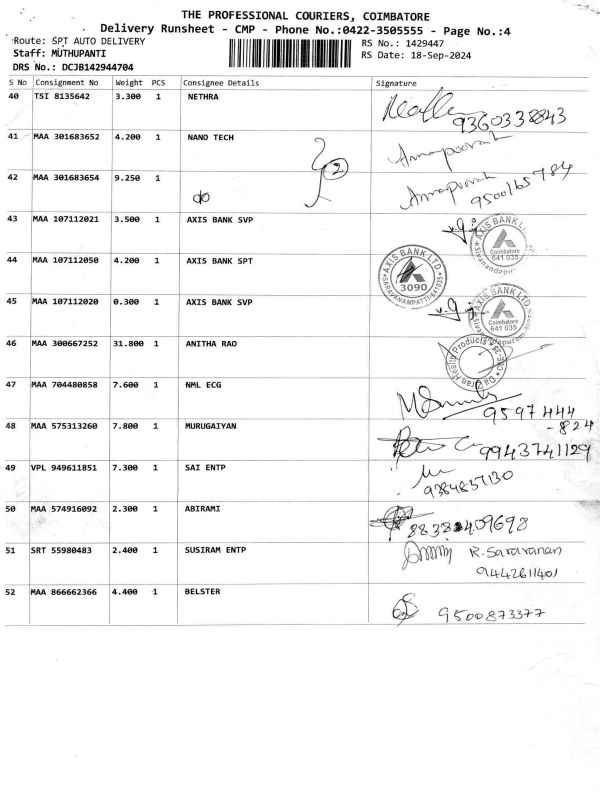 THE PROFESSIONAL COURIERS, COIMBATORE
Delivery Runsheet - CMP - Phone No.:0422-3505555 - Page No.:4
Route: SPT AUTO DELIVERY
RS No.: 1429447
Staff: MUTHUPANTI
RS Date: 18-Sep-2024
DRS No.: DCJB142944704
S No Consignment No Weight PCS Consignee Details Signature
40 TSI 8135642 3.300 1 NETHRA
9360338843
41 MAA 301683652 4.200 1 NANO TECH
2
42 MAA 301683654 9.250 1 do
9500165784
43 MAA 107112021 3.500 1 AXIS BANK SVP
AXIS BANK LTD
Coimbatore
641 035
44 MAA 107112050 4.200 1 AXIS BANK SPT
AXIS BANK LTD
3090
SARAVANAMPATTI-641035
45 MAA 107112020 0.300 1 AXIS BANK SVP
AXIS BANK LTD
Coimbatore
641 035
46 MAA 300667252 31.800 1 ANITHA RAO
47 MAA 704480858 7.600 1 NML ECG
9597444
-824
48 MAA 575313260 7.800 1 MURUGAIYAN
9943741129
49 VPL 949611851 7.300 1 SAI ENTP
9384857130
50 MAA 574916092 2.300 1 ABIRAMI
409698
51 SRT 55980483 2.400 1 SUSIRAM ENTP
R. Saravanan
9442611401
52 MAA 866662366 4.400 1 BELSTER
9500873377